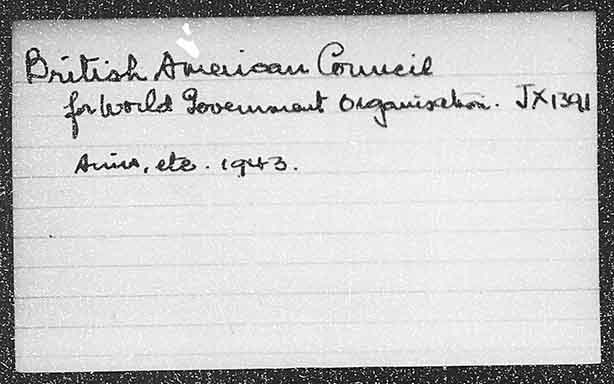 British American Council
for World Government Organisation. JX1391
Aims, etc. 1943.